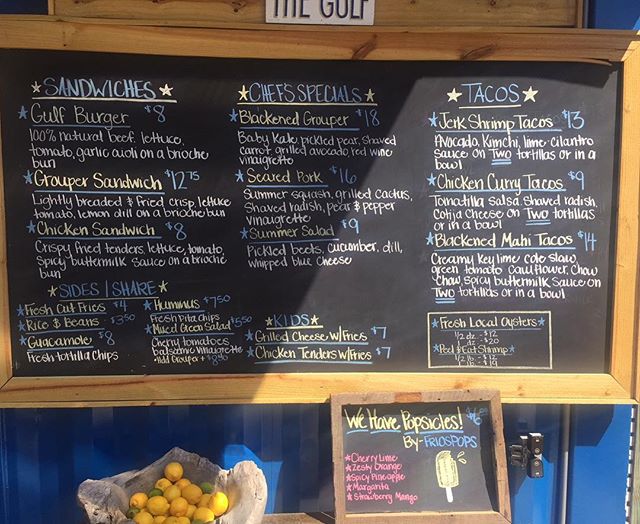 THE GULF
SANDWICHES
Gulf Burger $8
100% natural beef. lettuce,
tomato, garlic aioli on a brioche
bun
Grouper Sandwich $12.75
Lightly breaded & fried crisp, lettuce
tomato, lemon drill on a brioche bun
Chicken Sandwich $8
Crispy fried tenders, lettuce, tomato
Spicy buttermilk sauce on a brioche
bun
SIDES | SHARE
Fresh Cut Fries $4
Rice & Beans $3.50
Guacamole $8
Fresh tortilla chips
Hummus $7.50
Fresh Pita chips
Mixed Green Salad $5.50
Cherry tomatoes
balsamic vinaigrette
Add Grouper +
CHEFS SPECIALS
Blackened Grouper $18
Baby Kale, pickled pear, shaved
carrot grilled avocado red wine
vinaigrette
Seared Pork $16
Summer squash, grilled cactus,
Shaved radish, pear & pepper
vinaigrette
Summer Salad $9
Pickled beets, cucumber, dill,
whipped blue cheese
KIDS
Grilled Cheese w/Fries $7
Chicken Tenders w/Fries $7
TACOS
Jerk Shrimp Tacos $13
Avocado, Kimchi, lime-cilantro
sauce on Two tortillas or in a
bowl
Chicken Curry Tacos $9
Tomatilla salsa, Shaved radish,
Cotija Cheese on Two tortillas
or in a bowl
Blackened Mahi Tacos $14
Creamy Key lime cole slaw,
green tomato Cauliflower Chow
-Chow, spicy buttermilk Sauce on
Two tortillas or in a bowl
Fresh Local Oysters
1/2 dz - $12
1 dz - $20
Peel & Eat Shrimp
1/2 lb - $12
1 lb - $19
We Have Popsicles! $6
By- FRIOSPOPS
Cherry Lime
Zesty Orange
Spicy Pineapple
Margarita
Strawberry Mango